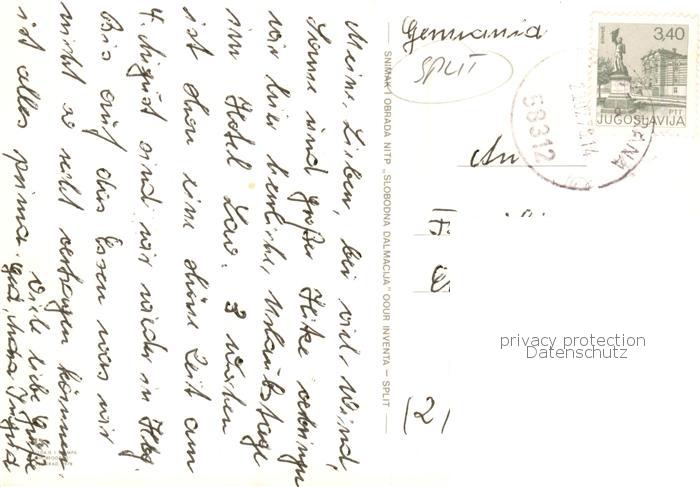 Meine Lieben, bei viel Wind,
Sonne und großer Hitze verbringen
wir hier herrliche Urlaubstage
im Hotel Lav. 3 Wochen
ist schon eine schöne Zeit am
4. August sind wir wieder in Hbg.
Bis auf das Essen was wir
nicht so recht vertragen können,
ist alles prima.
Viele liebe Grüße
SNIMAK I OBRADA NITP „SLOBODNA DALMACIJA" OOUR INVENTA — SPLIT
Germania
SPLIT
3,40
PTT
JUGOSLAVIJA
58312
An
F.
(2)
privacy protection
Datenschutz